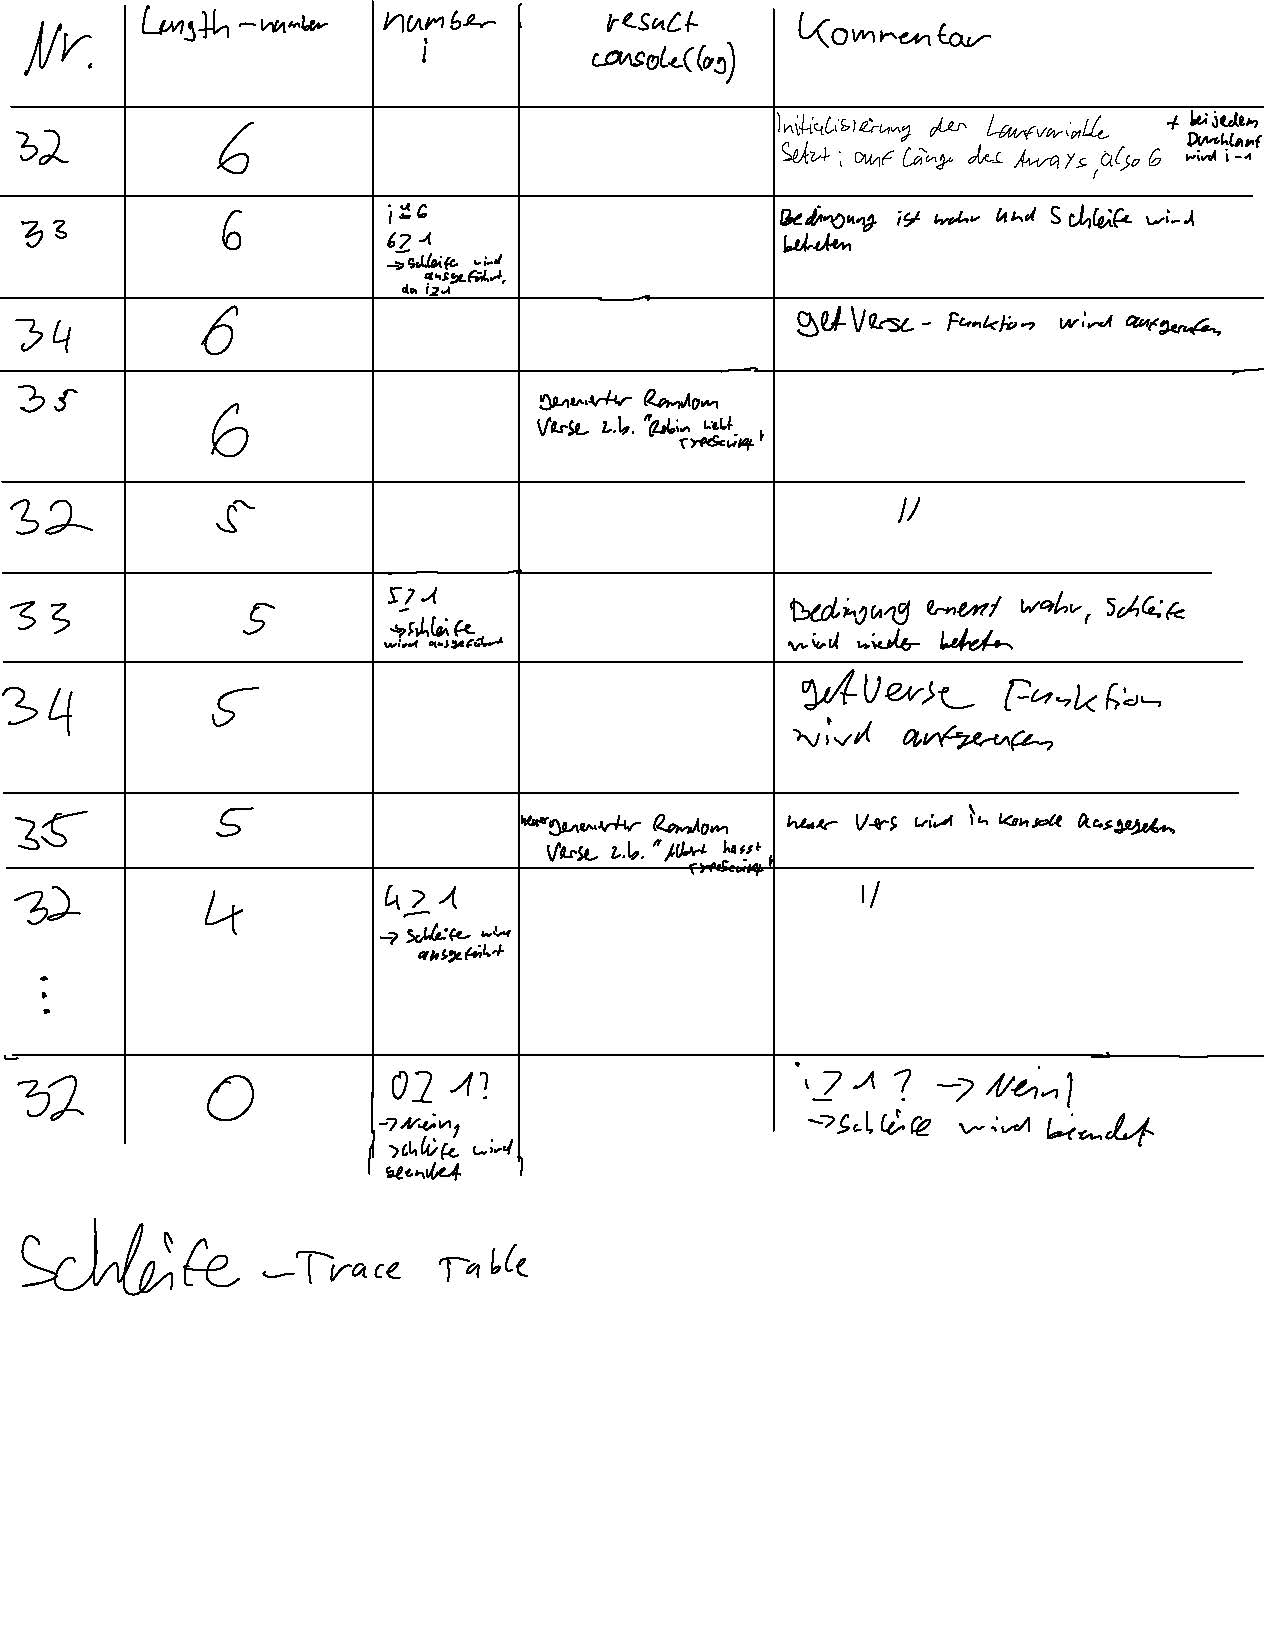 Nr.
Length-number
number
i
result
console(log)
Kommentar
32
6
Initialisierung der Laufvariable
Setzt i auf Länge des Arrays, also 6
+ bei jedem
Durchlauf
wird i-1
33
6
i = 6
6≥1
→ Schleife wird
ausgeführt,
da i≥1
Bedingung ist wahr und Schleife wird
betreten
34
6
getVerse - Funktion wird aufgerufen
35
6
generierter Random
Verse z.b. "Robin liebt
TypeScript"
32
5
//
33
5
5≥1
→ Schleife
wird ausgeführt
Bedingung erneut wahr, Schleife
wird wieder betreten
34
5
getVerse Funktion
wird aufgerufen
35
5
neuer generierter Random
Verse z.b. "Albert hasst
TypeScript"
neuer Vers wird in Konsole ausgegeben
32
4
4≥1
→ Schleife wird
ausgeführt
//
⋮
32
0
0≥1?
→ Nein,
Schleife wird
beendet
i≥1? → Nein!
→ Schleife wird beendet
Schleife - Trace Table